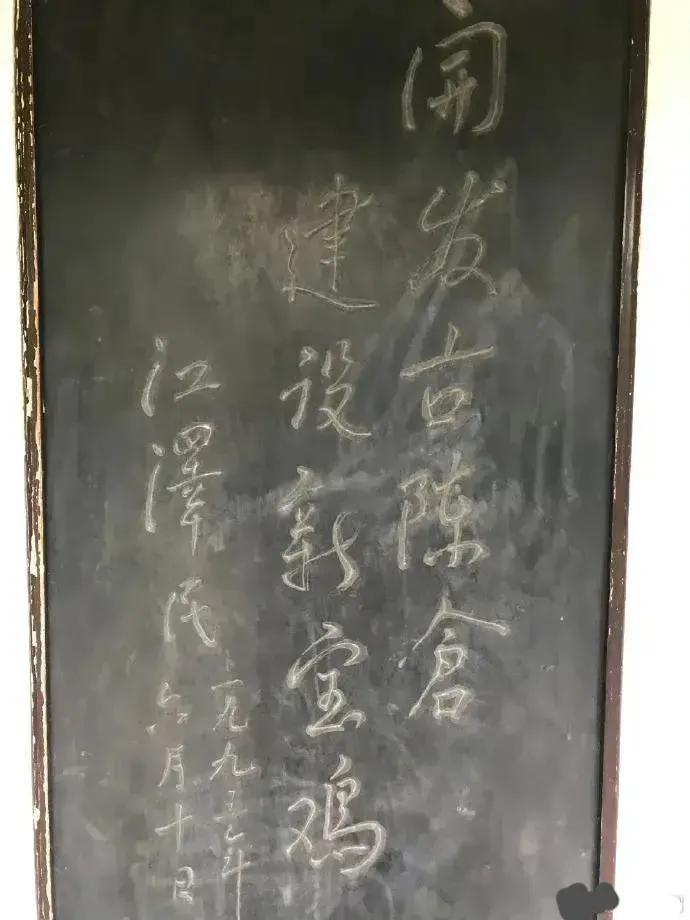 開发古陈仓
建设新宝鸡
江澤民
一九九五年
六月十日